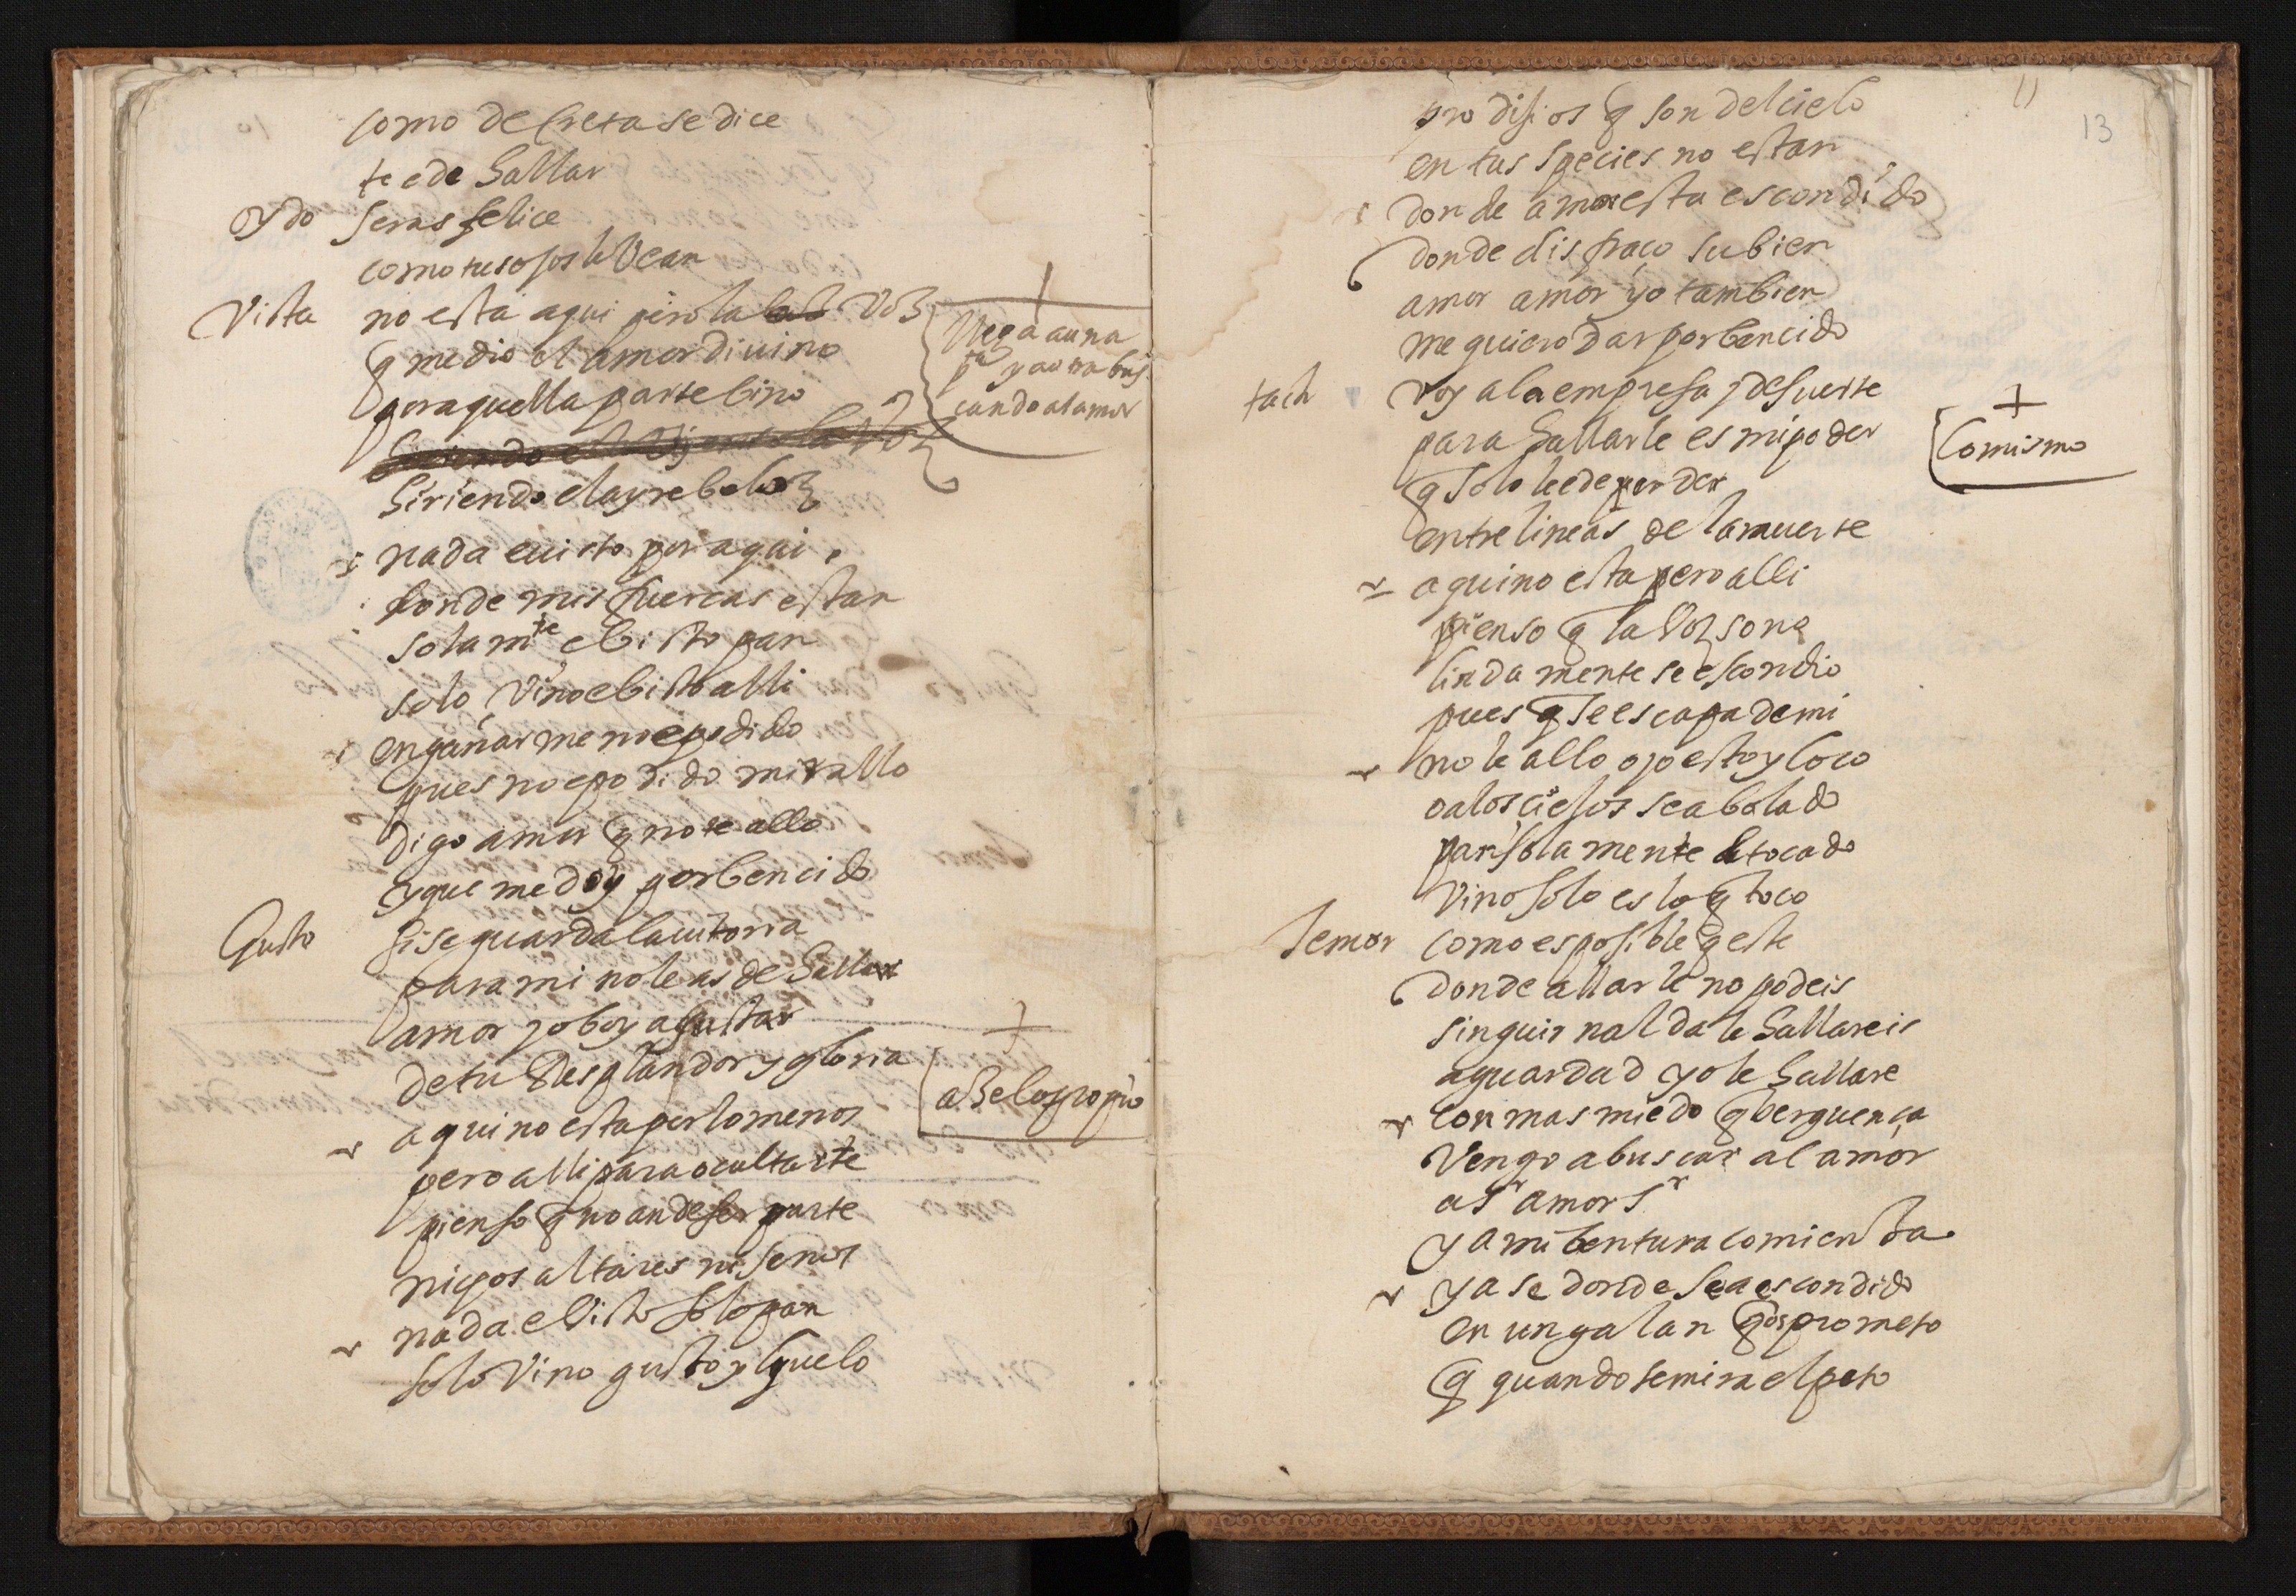 como de Creta se dice
te e de hallar
oydo seras felice
como tus ojos le vean
Vista no esta aqui pero la voz
q me dio el amor diuino
por aquella parte bino
hiriendo el ayre beloz
nada e uisto por aqui
donde mis fuerças estan
solamte e bisto pan
solo vino e bisto alli
engañarme no e podido
pues no e podido mirallo
digo amor q no te allo
y que me doy por bencido
llega a una
pte y a otra bus
cando al amor
Gusto si se guarda la uitoria
para mi no le as de hallar
amor yo boy a gustar
de tu resplandor y gloria
aqui no esta por lo menos
pero alli para ocultarte
pienso q no an de ser parte
nada e visto solo pan
solo vino gusto y huelo
aze lo propio
11
13
prodijios q son del cielo
en tus species no estan
donde amor esta escondido
donde disfraço su bien
amor amor yo tambien
me quiero dar por bencido
tacto voy a la empresa y de suerte
para hallarle es mi poder
q solo le e de perder
entre lineas de la muerte
aqui no esta pero alli
pienso q la voz sono
lindamente se escondio
pues q se escapa de mi
no le allo o yo estoy loco
o a los cielos se a bolado
pan solamente e tocado
vino solo es lo q toco
lo mismo
Temor como es posible q este
donde allarle no podeis
sin guirnalda le hallareis
aguardad yo le hallare
con mas miedo q berguença
vengo a buscar al amor
a sr amor sr
ya mi bentura comiença
ya se donde se a escondido
en un galan q os prometo
q quando se mira el peto